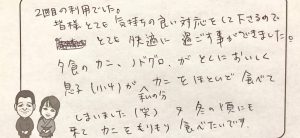 2回目の利用でした。
皆様とても気持ちの良い対応をして下さるので
とても快適に過ごす事ができました。
夕食のカニ、ノドグロ、がとてもおいしく
息子(小4)がカニをほとんど食べて
私の分
しまいました(笑) 又冬の頃にも
来てカニをもりもり食べたいです。